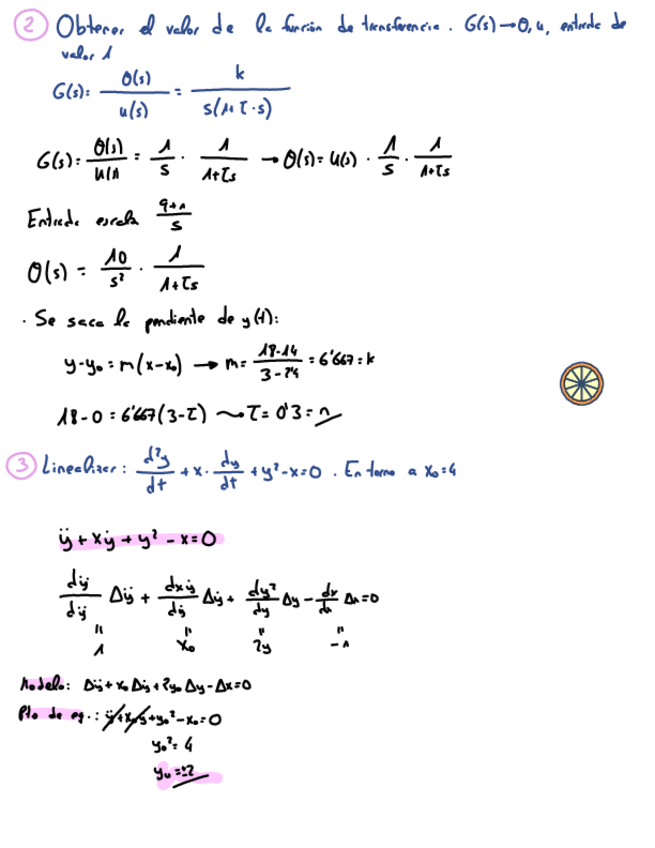 ② Obtener el valor de la función de transferencia. G(s) → θ, u, entrada de
valor 1
G(s): θ(s)/u(s) = k/s(1+τ·s)
G(s): θ(s)/u(s) = 1/s · 1/1+τs → θ(s) = u(s) · 1/s · 1/1+τs
Entrada escala 9+1/s
θ(s) = 10/s² · 1/1+τs
· Se saca la pendiente de y(t):
y-y₀ = m(x-x₀) → m = 18-14/3-2'4 = 6'667 = k
18-0 = 6'667(3-τ) ⟿ τ = 0'3 =
③ Linealizar: d²y/dt + x· dy/dt + y²-x=0. En torno a x₀=4
ÿ + xẏ + y² - x = 0
dÿ/dÿ Δÿ + dxẏ/dẏ Δẏ + dy²/dy Δy - dx/dx Δx=0
" " " "
1 x₀ 2y -1
Modelo: Δÿ + x₀Δẏ + 2y₀Δy - Δx=0
Pto de eq.: ÿ + x₀ẏ + y₀² - x₀=0
y₀² = 4
y₀ = ±2